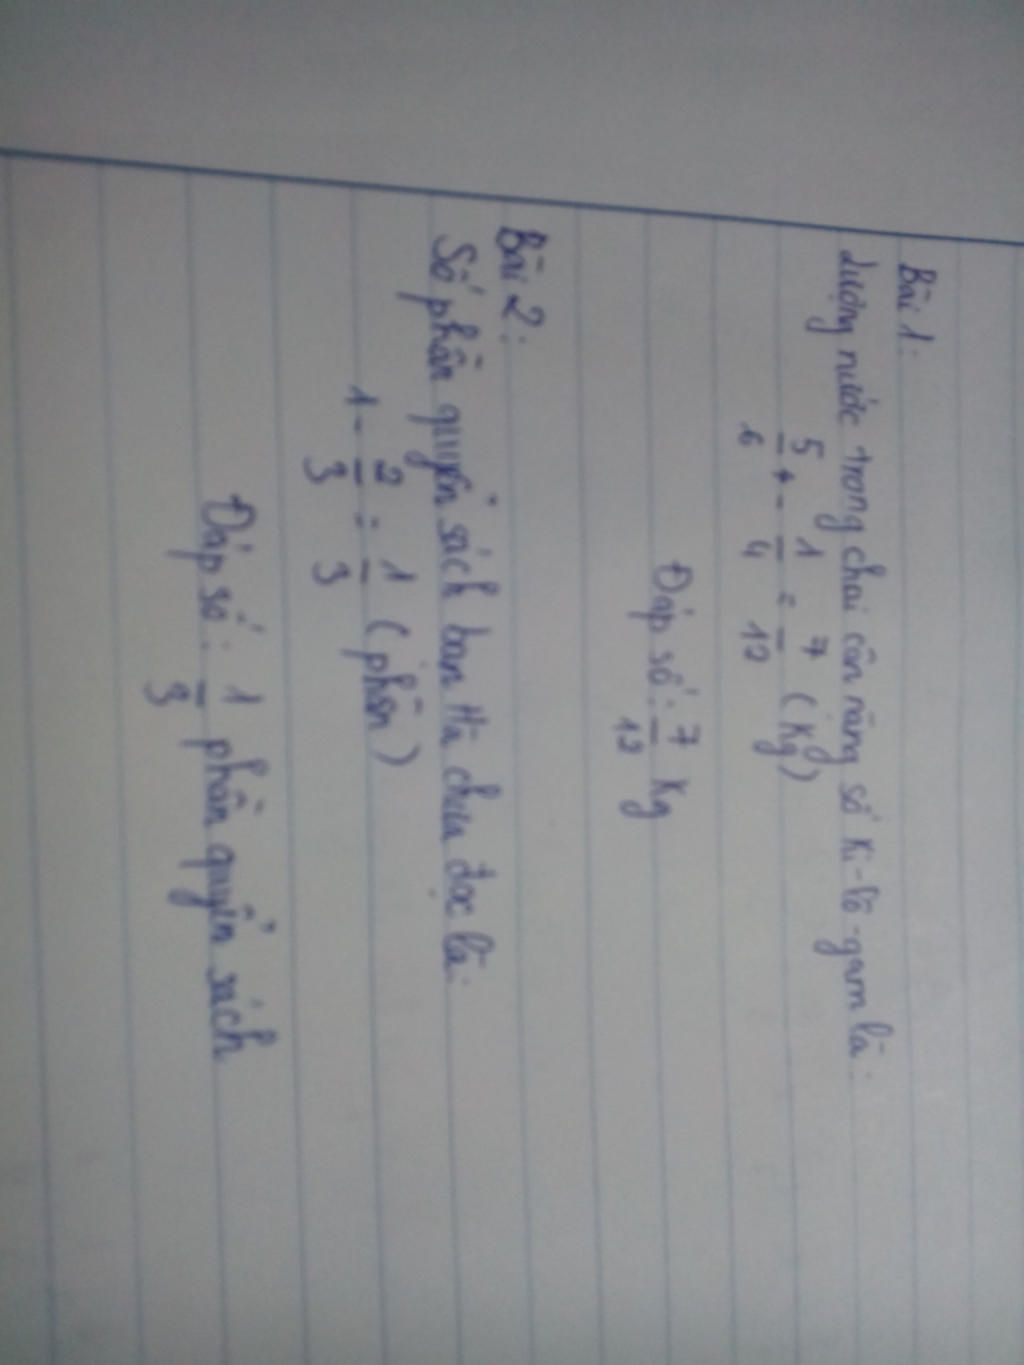 Bài 1:
Lượng nước trong chai cân nặng số ki-lô-gam là:
5/6 - 1/4 = 7/12 (kg)
Đáp số: 7/12 kg
Bài 2:
Số phần quyển sách bạn Hà chưa đọc là:
1 - 2/3 = 1/3 (phần)
Đáp số: 1/3 phần quyển sách